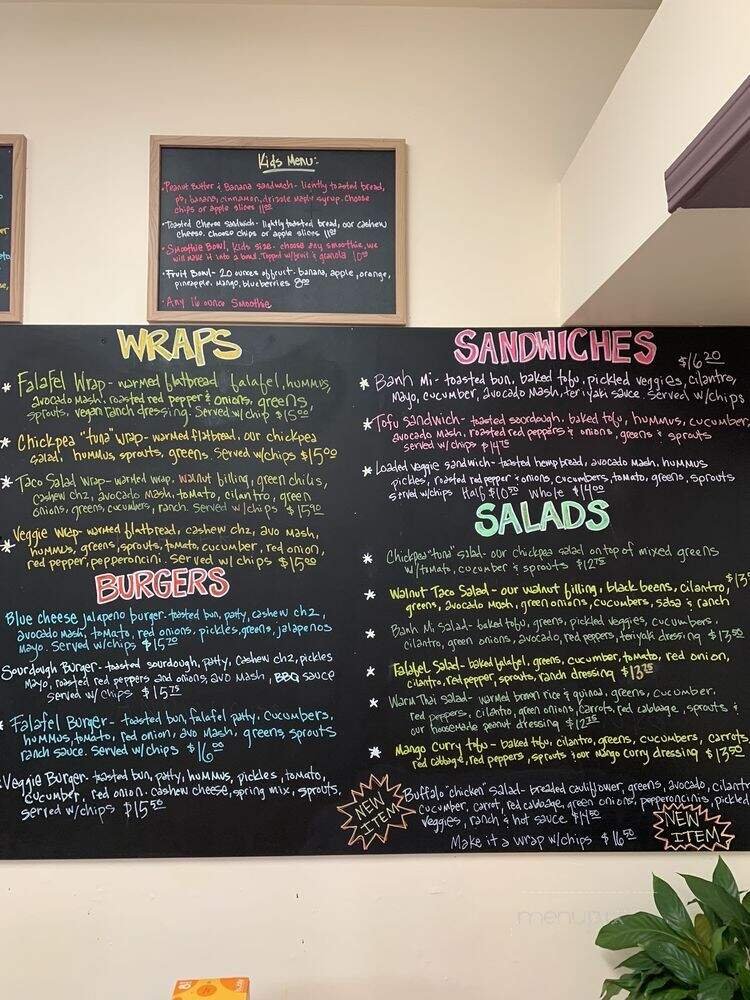 Kids Menu:
• Peanut Butter & Banana sandwich - lightly toasted bread,
pb, banana, cinnamon, drizzle maple syrup. Choose
chips or apple slices 11.00
• Toasted Cheese Sandwich - lightly toasted bread, our cashew
cheese. Choose chips or apple slices 11.00
• Smoothie Bowl, Kids size - choose any smoothie, we
will make it into a bowl. Topped w/fruit & granola 10.50
• Fruit Bowl - 20 ounces of fruit - banana, apple, orange,
pineapple, mango, blueberries 8.00
• Any 16 ounce Smoothie
WRAPS
* Falafel Wrap - warmed flatbread falafel, hummus,
avocado mash, roasted red pepper & onions, greens
sprouts, vegan ranch dressing. Served w/chip $15.00
* Chickpea "tuna" wrap - warmed flatbread, our chickpea
salad, hummus, sprouts, greens. Served w/chips $15.00
* Taco Salad wrap - warmed wrap, walnut filling, green chilis,
cashew chz, avocado mash, tomato, cilantro, green
onions, greens, cucumbers, ranch. Served w/chips $15.90
* Veggie Wrap - warmed flatbread, cashew chz, avo mash,
hummus, greens, sprouts, tomato, cucumber, red onion,
red pepper, pepperoncini. Served w/chips $15.00
BURGERS
Blue cheese jalapeno burger - toasted bun, patty, cashew chz,
avocado mash, tomato, red onions, pickles, greens, jalapenos
mayo. Served w/chips $15.70
Sourdough Burger - toasted sourdough, patty, cashew chz, pickles
mayo, roasted red peppers and onions, avo mash, BBQ sauce
served w/chips $15.75
* Falafel Burger - toasted bun, falafel patty, cucumbers,
hummus, tomato, red onion, avo mash, greens, sprouts
ranch sauce. Served w/chips $16.00
Veggie Burger - toasted bun, patty, hummus, pickles, tomato,
cucumber, red onion, cashew cheese, spring mix, sprouts,
served w/chips $15.50
SANDWICHES
$16.20
* Banh Mi - toasted bun, baked tofu, pickled veggies, cilantro,
mayo, cucumber, avocado mash, teriyaki sauce. served w/chips
* Tofu sandwich - toasted sourdough, baked tofu, hummus, cucumber
avocado mash, roasted red peppers & onions, greens & sprouts
served w/chips $14.75
* Loaded veggie sandwich - toasted hemp bread, avocado mash, hummus
pickles, roasted red pepper & onions, cucumbers, tomato, greens, sprouts
served w/chips Half $10.50 Whole $14.00
SALADS
* Chickpea "tuna" salad - our chickpea salad on top of mixed greens
w/tomato, cucumber & sprouts $12.75
* Walnut Taco Salad - our walnut filling, black beans, cilantro, $13.
greens, avocado mash, green onions, cucumbers, salsa & ranch
* Banh Mi Salad - baked tofu, greens, pickled veggies, cucumbers,
cilantro, green onions, avocado, red peppers, teriyaki dressing $13.50
* Falafel Salad - baked falafel, greens, cucumber, tomato, red onion,
cilantro, red pepper, sprouts, ranch dressing $13.75
* Warm Thai Salad - warmed brown rice & quinoa, greens, cucumber,
red peppers, cilantro, green onions, carrots, red cabbage, sprouts &
our housemade peanut dressing $12.75
* Mango Curry tofu - baked tofu, cilantro, greens, cucumbers, carrots
red cabbage, red peppers, sprouts & our mango curry dressing $13.50
NEW
ITEM
Buffalo "chicken" salad - breaded cauliflower, greens, avocado, cilant
cucumber, carrot, red cabbage, green onions, pepperoncinis, pickled
veggies, ranch & hot sauce $14.50
Make it a wrap w/chips $16.50
NEW
ITEM